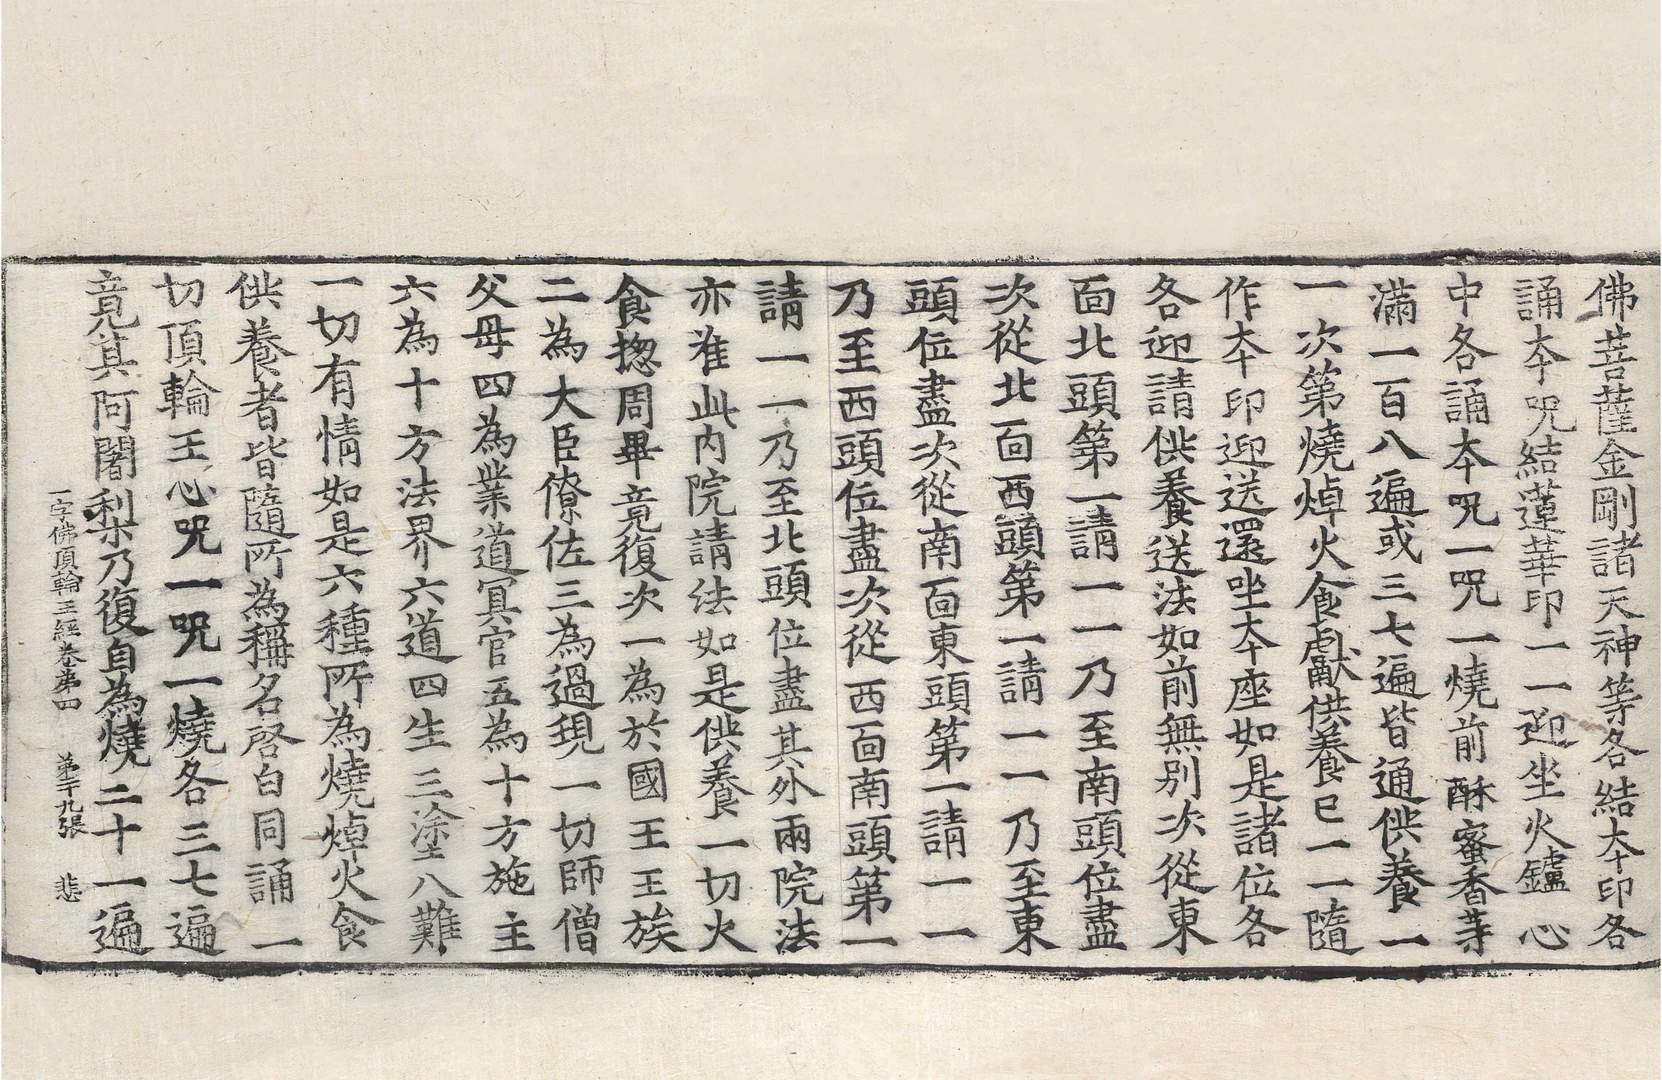 佛菩薩金剛諸天神等各結本印各
誦本呪結蓮華印一一迎坐火鑪心
中各誦本呪一呪一燒前酥蜜香等
滿一百八遍或三七遍皆通供養一
一次第燒焯火食獻供養已一一隨
作本印迎送還坐本座如是諸位各
各迎請供養送法如前無別次從東
面北頭第一請一一乃至南頭位盡
次從北面西頭第一請一一乃至東
頭位盡次從南面東頭第一請一一
乃至西頭位盡次從西面南頭第一
請一一乃至北頭位盡其外兩院法
亦准此內院請法如是供養一切火
食揔周畢竟復次一為於國王王族
二為大臣僚佐三為過現一切師僧
父母四為業道冥官五為十方施主
六為十方法界六道四生三塗八難
一切有情如是六種所為燒焯火食
供養者皆隨所為稱名啓白同誦一
切頂輪王心呪一呪一燒各三七遍
竟其阿闍梨乃復自為燒二十一遍
一字佛頂輪王經卷第四 第二十九張 悲